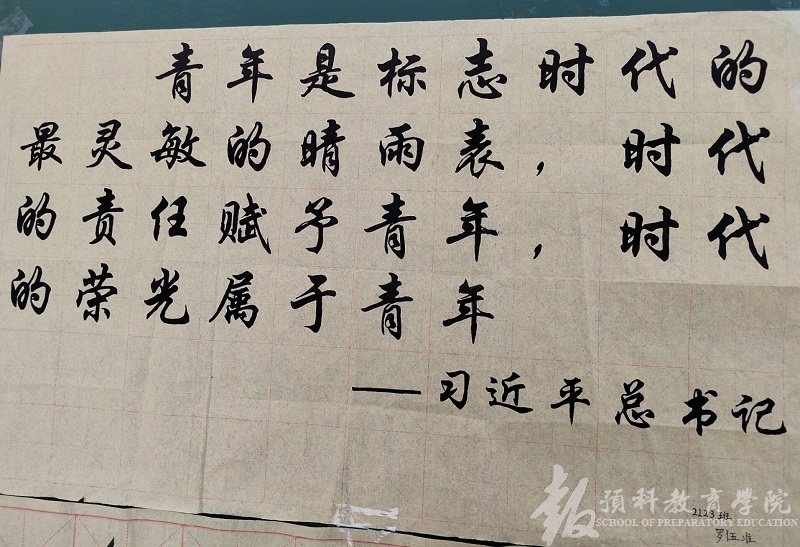 青年是标志时代的
最灵敏的晴雨表，时代
的责任赋予青年，时代
的荣光属于青年
——习近平总书记
2123班
報 預科教育學院
SCHOOL OF PREPARATORY EDUCATION